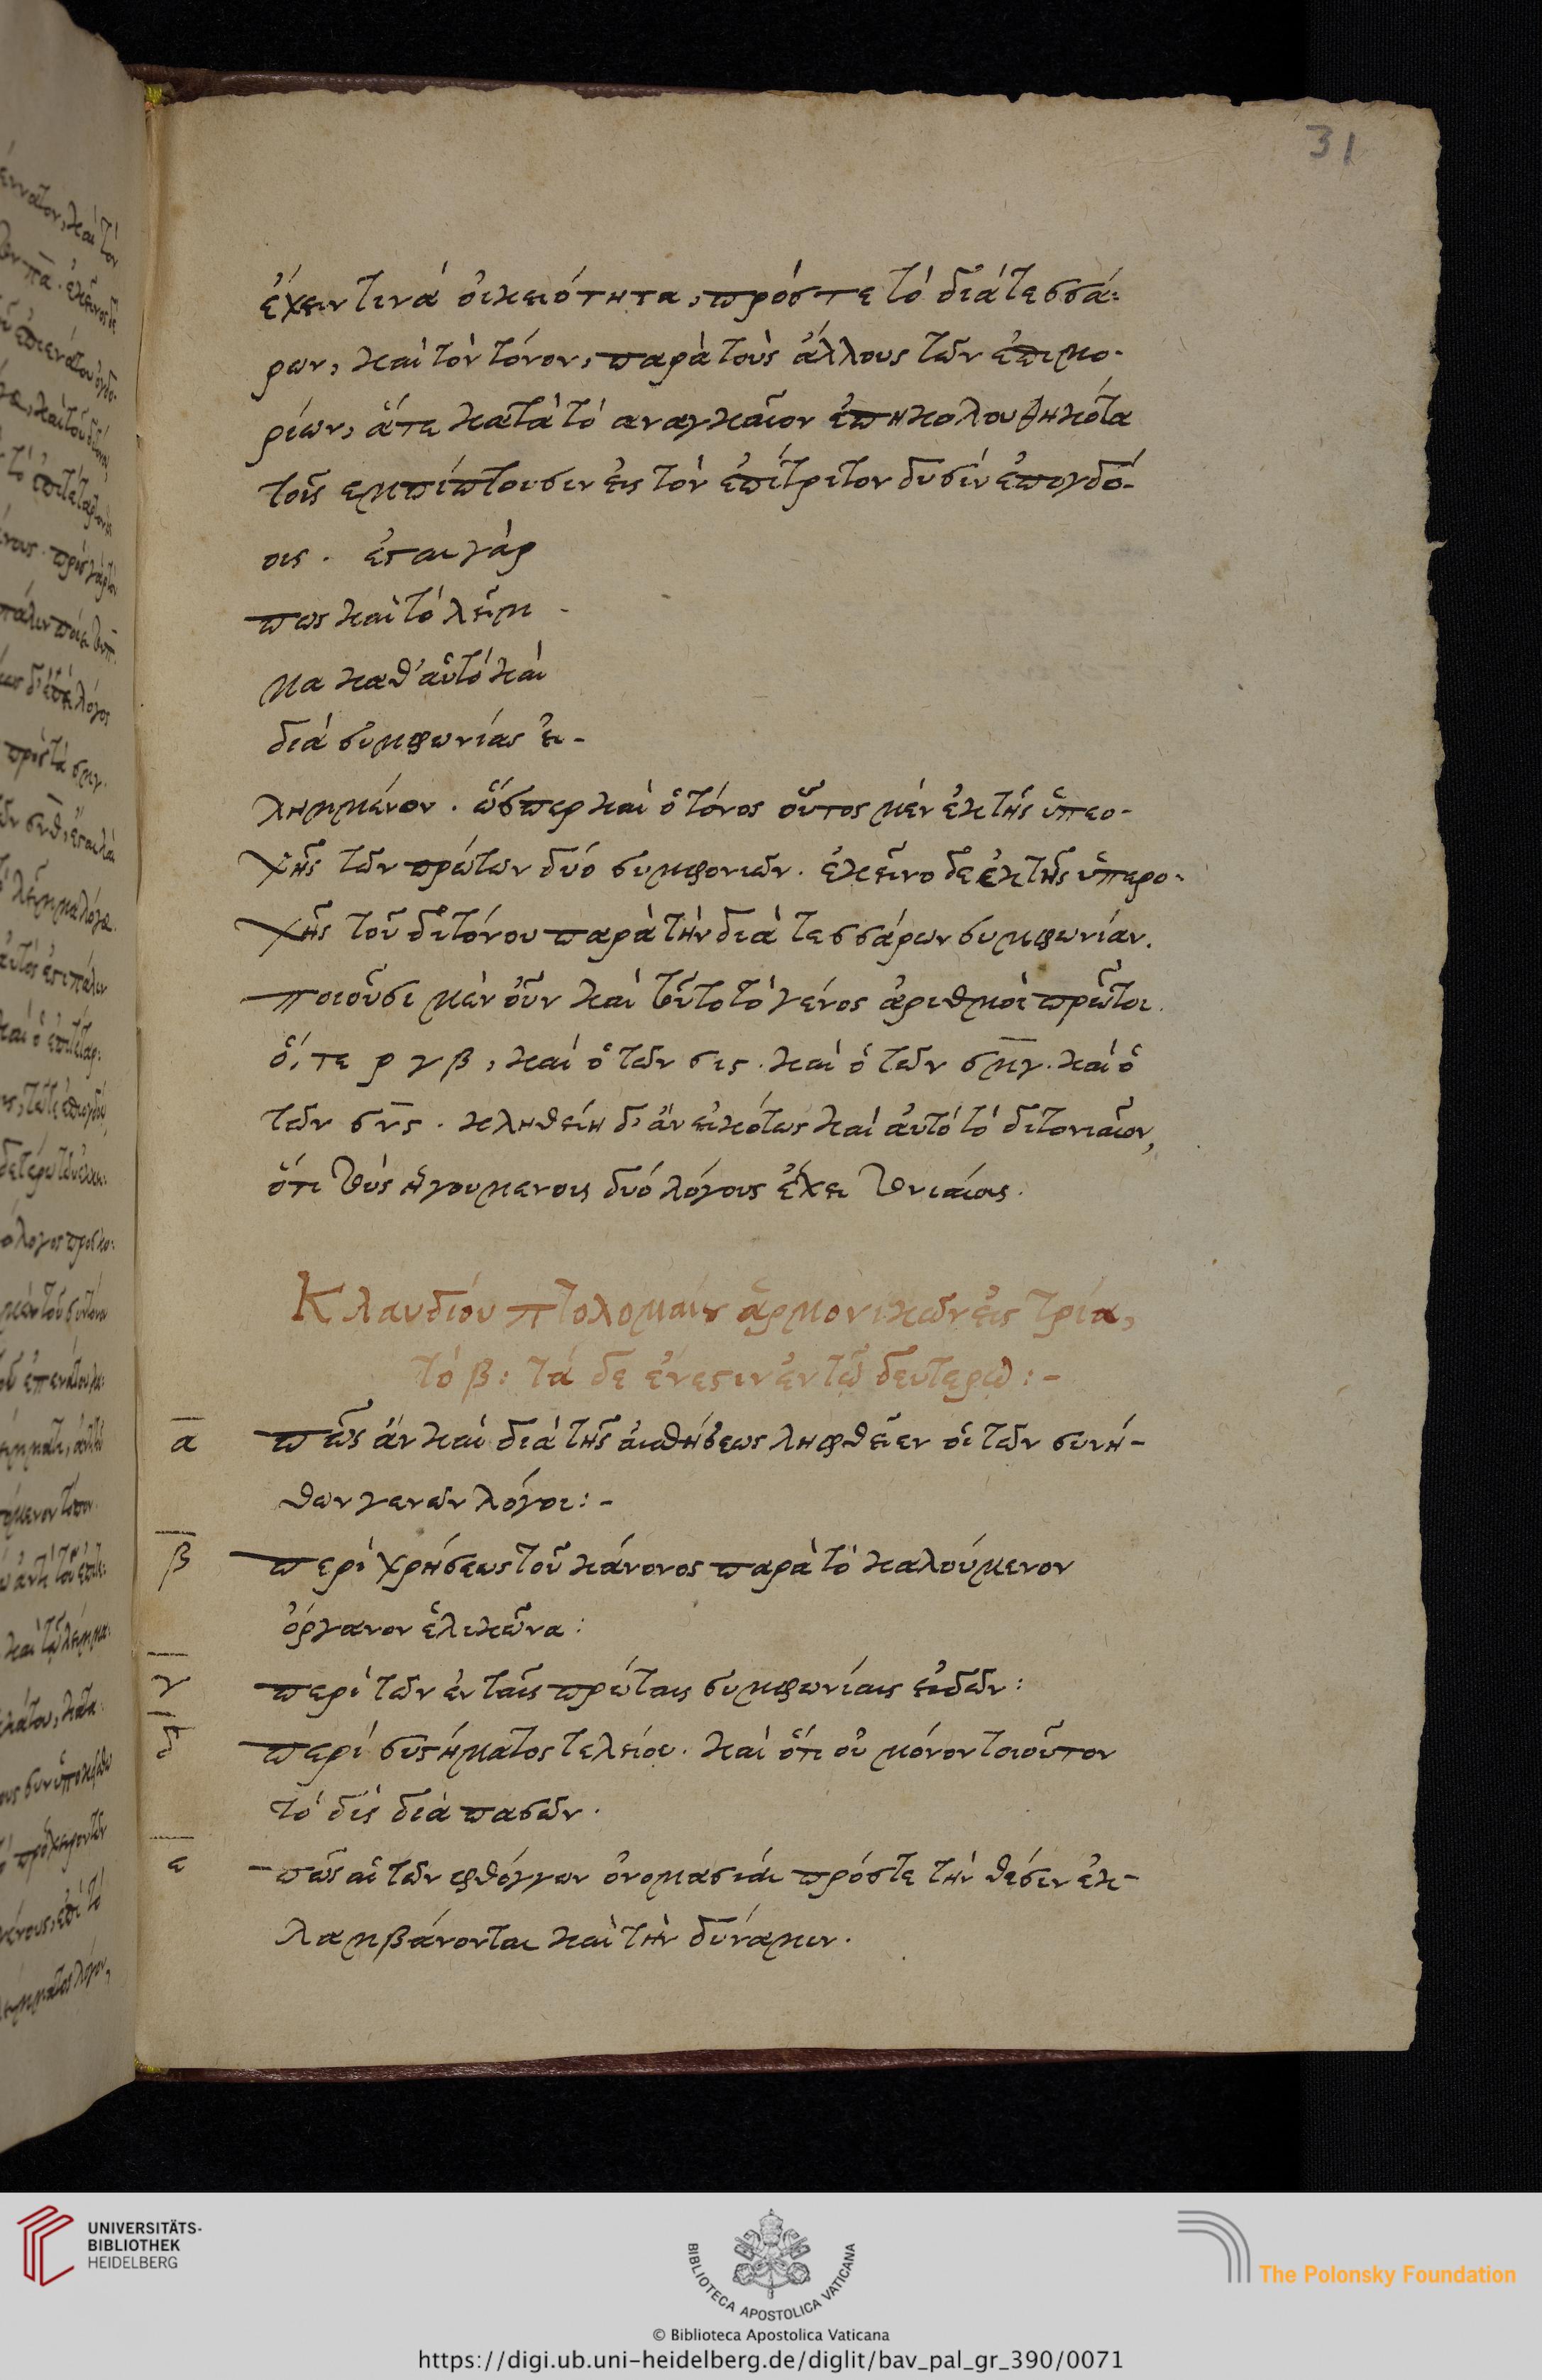 31
ἔχειν τινὰ οἰκειότητα, πρός τε τὸ διὰ τεσσά-
ρων, καὶ τὸν τόνον, παρὰ τοὺς ἄλλους τῶν ἐπιμο-
ρίων, ἅτε κατὰ τὸ αναγκαῖον ἐπηκολουθηκότα
τοῖς εμπίπτουσιν εἰς τὸν ἐπίτριτον δυσὶν ἐπογδό-
οις. ἔσται γάρ
πως καὶ τὸ λεῖμ
μα καθ' αὑτὸ καὶ
διὰ συμφωνίας εἰ-
λημμένον. ὥσπερ καὶ ὁ τόνος οὗτος μὲν ἐκ τῆς ὑπερο-
χῆς τῶν πρώτων δύο συμφονιῶν. ἐκεῖνο δε ἐκ τῆς ὑπερο-
χῆς τοῦ διτόνου παρὰ τὴν διὰ τεσσάρων συμφωνίαν.
ποιοῦσι μὲν οὖν καὶ τοῦτο τὸ γένος ἀριθμοὶ πρῶτοι.
ὅ, τε ργβ, καὶ ὁ τῶν σις. καὶ ὁ τῶν σμγ. καὶ ὁ
τῶν σνς. κληθείη δ' ἂν εἰκότως καὶ αὐτὸ τὸ διτονιαῖον,
ὅτι τοὺς ἡγουμενους δυό λόγους ἔχει τονιαίους.
Κλαυδίου πτολομαίου ἁρμονικῶν εἰς τρία,
τὸ β: τά δε ἔνεστιν ἐν τῷ δευτερῳ:-
α πῶς ἂν καὶ διὰ τῆς αἰσθήσεως ληφθεῖεν οἱ τῶν συνή-
θων γενῶν λόγοι:-
β περὶ χρήσεως τοῦ κάνονος παρὰ τὸ καλούμενον
ὄργανον ἑλικῶνα:
γ περὶ τῶν ἐν ταῖς πρώταις συμφωνίαις εἰδῶν:
δ περὶ συστήματος τελείου. καὶ ὅτι οὐ μόνον τοιοῦτον
τὸ δὶς διὰ πασῶν.
ε πῶς αἱ τῶν φθόγγων ὀνομασίαι πρός τε τὴν θέσιν ἐκ-
λαμβάνονται καὶ τὴν δύναμιν.
UNIVERSITÄTS-
BIBLIOTHEK
HEIDELBERG
BIBLIOTECA APOSTOLICA VATICANA
The Polonsky Foundation
© Biblioteca Apostolica Vaticana
https://digi.ub.uni-heidelberg.de/diglit/bav_pal_gr_390/0071